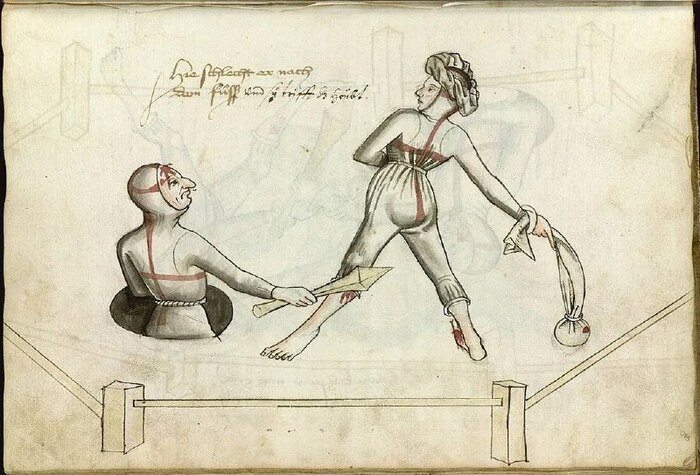 Hie schlecht er nach
dem fuß und sy triff ds höubt.